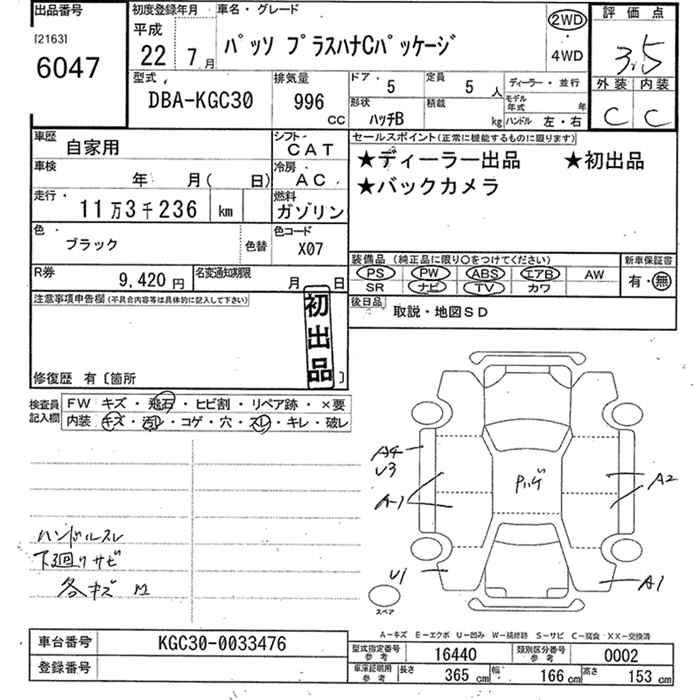 出品番号
[2163]
6047
初度登録年月
平成
22年 7月
車名・グレード
パッソ プラスハナCパッケージ
2WD
・
4WD
評価点
3.5
外装 内装
C C
型式
DBA-KGC30
排気量
996
cc
ドア・
5
定員
5 人
形状
ハッチB
積載
kg
ディーラー・並行
モデル年式 年
ハンドル 左・右
車歴
自家用
シフト
CAT
車検
年 月( 日)
冷房
AC
走行・
11万3千236 km
燃料
ガソリン
色・
ブラック
色替
色コード
X07
R券
9,420円
名変通知期限
月 日
セールスポイント(正常に機能するものに限ります)
★ディーラー出品 ★初出品
★バックカメラ
装備品 (純正品に限り〇をつけてください)
新車保証書
PS PW ABS エアB AW
SR ナビ TV カワ
有・無
後日品
取説・地図SD
注意事項申告欄(不具合内容等は具体的に記入して下さい)
初出品
修復歴 有〔箇所 〕
検査員記入欄
FW キズ・飛石・ヒビ割・リペア跡・×要
内装 キズ・汚レ・コゲ・穴・スレ・キレ・破レ
ハンドルスレ
下廻りサビ
各キズ M
A4
U3
A-1
U1
A2
A1
スペア
A-キズ E-エクボ U-凹み W-補修跡 S-サビ C-腐食 XX-交換済
車台番号
KGC30-0033476
登録番号
型式指定番号
参考
16440
類別区分番号
参考
0002
車庫証明用
参考
長さ 365 cm
幅 166 cm
高さ 153 cm